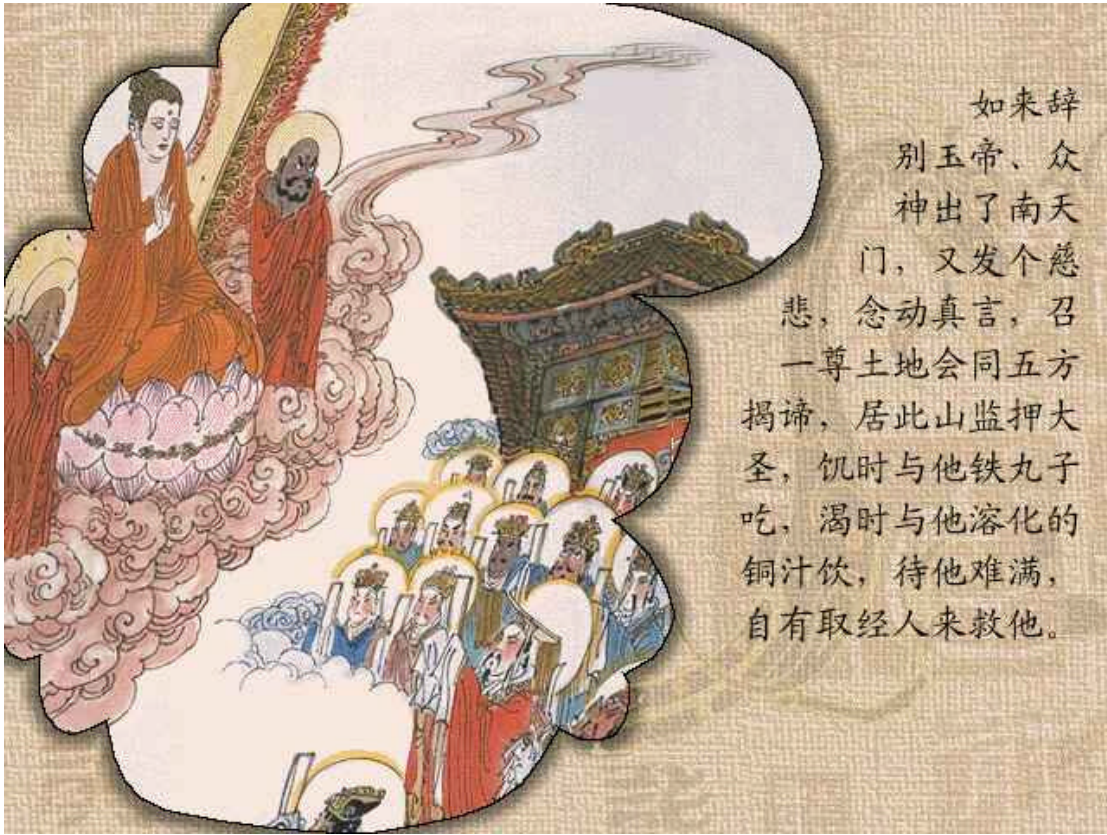 如来辞
别玉帝、众
神出了南天
门，又发个慈
悲，念动真言，召
一尊土地会同五方
揭谛，居此山监押大
圣，饥时与他铁丸子
吃，渴时与他溶化的
铜汁饮，待他难满，
自有取经人来救他。